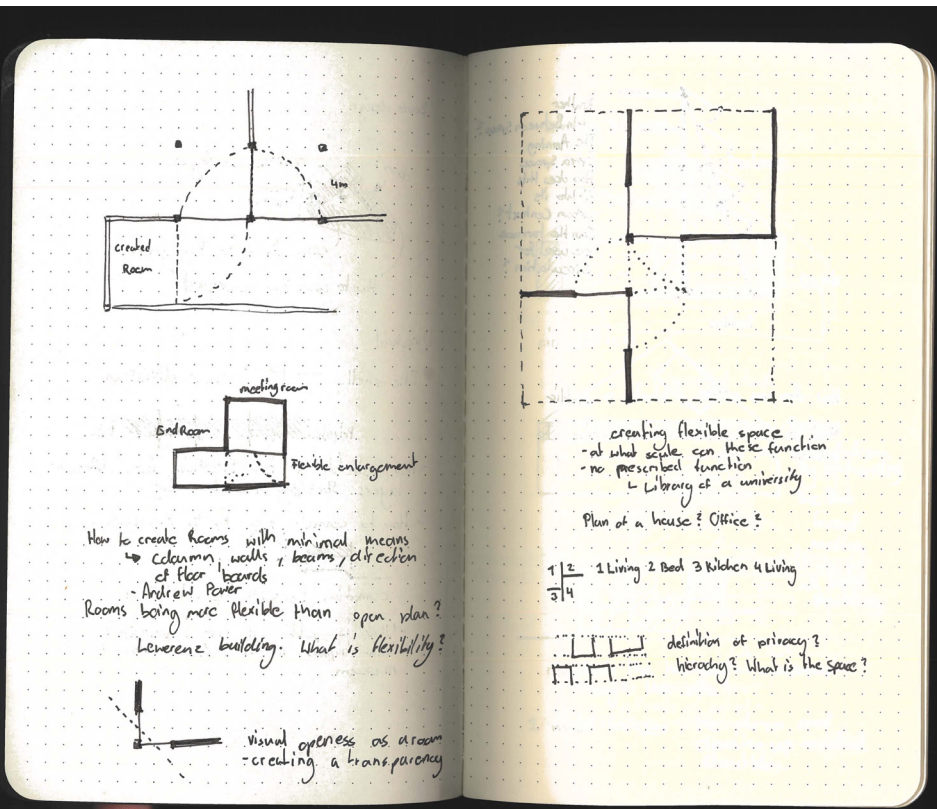 4m
created
Room
meeting room
End Room
Flexible enlargement
How to create Rooms with minimal means
↳ column, walls, beams, direction
of floor boards
- Andrew Power
Rooms being more flexible than open plan?
Leverenz building. What is flexibility?
visual openess as a room
- creating a transparency
creating flexible space
- at what scale can these function
- no prescribed function
↳ Library of a university
Plan of a house? Office?
1 2 - 1 Living 2 Bed 3 Kitchen 4 Living
3 4
definition of privacy?
hierachy? What is the space?